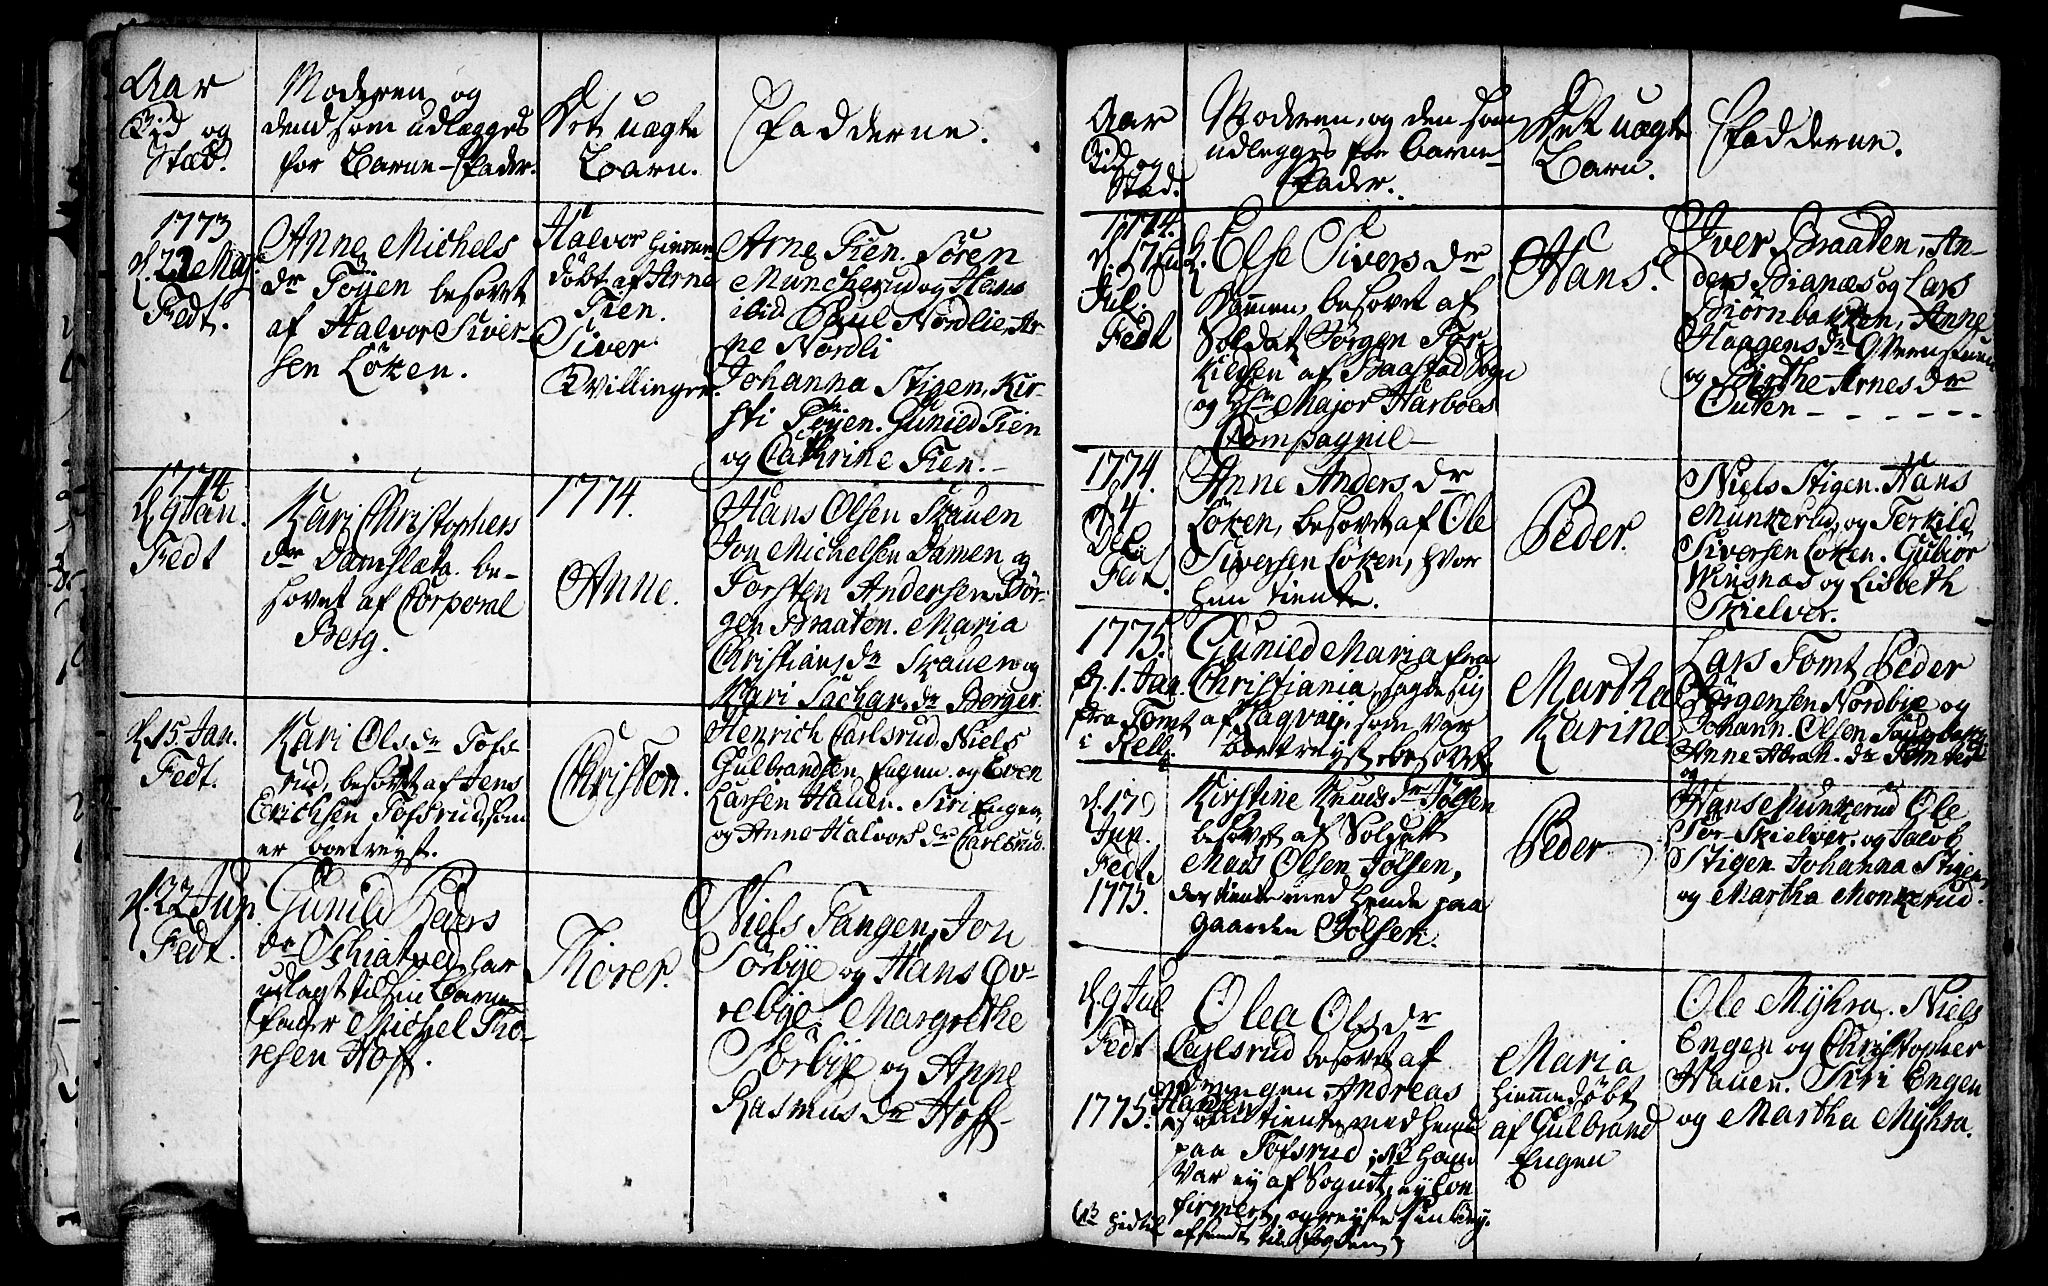 Aar
Tid og
Stæd.
Moderen og
dend som udlægges
for Barne-Fader.
Det uægte
Barn.
Fadderne.
1773
d. 23 Maj
Fedt.
Anne Michels
dr Töÿen besovet
af Halvor Siver-
sen Löken.
Halvor hieme-
döbt af Arne
Tien.
Siver
Tvillinger.
Arne Tien. Sören
Muncherud og Hans
ibid. Poul Nordlie, Ar-
ne Nordli
Johanna Stigen, Kir-
sti Töÿen. Gunild Tien
og Cathrine Tien.
1774
d. 9 Jan.
Fedt
Kari Christophers
dr Damslæta be-
sovet af Corporal
Berg.
1774.
Anne.
Hans Olsen Skauen
Jon Michelsen Damen og
Torsten Andersen Bör-
gen Braaten. Maria
Christians dr Skauen og
Kari Sachar. dr Berger.
d. 15 Jan.
Fedt.
Kari Ols dr Tofs-
rud, besovet af Jens
Erichsen Tofsrud, som
er bortreÿst.
Christen.
Henrich Carlsrud, Niels
Gulbrandsen Engen og Even
Larsen Hauen. Siri Engen,
og Anne Halvors dr Carlsrud.
d. 22 Jun.
Fedt.
Gunild Peders
dr Schiatved har
udlagt til sin Barne
fader Michel Tho-
resen Hoff.
Thorer.
Niels Tangen, Jon
Sörbÿe og Hans Öv-
rebÿe. Margrethe
Sörbÿe og Anne
Rasmus dr Hoff.
Aar
Tid og
Stæd.
Moderen, og den som
udlegges for Barne-
Fader.
Det uægte
Barn.
Fadderne.
1774.
d. 17
Jul.
Fedt
Else Sivers dr
Dammen, besovet af
Soldat Jörgen Tor-
kildsen af Baastad Sogn
og Hr Major Harboes
Compagnie
Hans.
Iver Braaten, An-
ders Bianæs og Lars
Biörnbakken, Anne
Haagens dr
og Birthe Arnes dr
Outen - - - - - -
1774.
d. 4
Dec.
Fedt.
Anne Anders dr
Löken, besovet af Ole
Siversen Löken, hvor
hun tiente.
Peder.
Niels Stigen. Hans
Munkerud, og Terkild
Siversen Löken. Gubiör
Winsnæs og Lisbeth
Skielver.
1775.
d. 1. Jan.
fra Tomt
Gunild Maria fra
Christiania, sagde sig
af som var
bortreÿst besovet.
Martha
Karine
Lars Tomt Peder
Jörgensen Nordbÿe og
Johann. Olsen
Anne Abrah. dr Tomter
og
d. 17
Jun.
Fedt.
1775.
Kirstine Knuds dr Jölsen
besovet af Soldat
Mads Olsen Jölsen,
der tiente med hende paa
gaarden Jölsen.
Peder
Hans Munkerud Ole
Tor- Skielver. og Jacob
Stigen. Johanna Stigen
og Martha Monkerud.
d. 9 Jul.
Fedt
1775.
Olea Ols dr
Carlsrud besovet af
drengen Andreas
Hansen
som tiente med hende
paa Tofsrud; NB hand
var eÿ af Sognet, eÿ con-
firmert, og reÿste
Maria
hiemmedöbt
af Gulbrand
Engen
Ole Mÿhra. Niels
Engen og Christopher
Hauen. Siri Engen
og Martha Mÿhra.